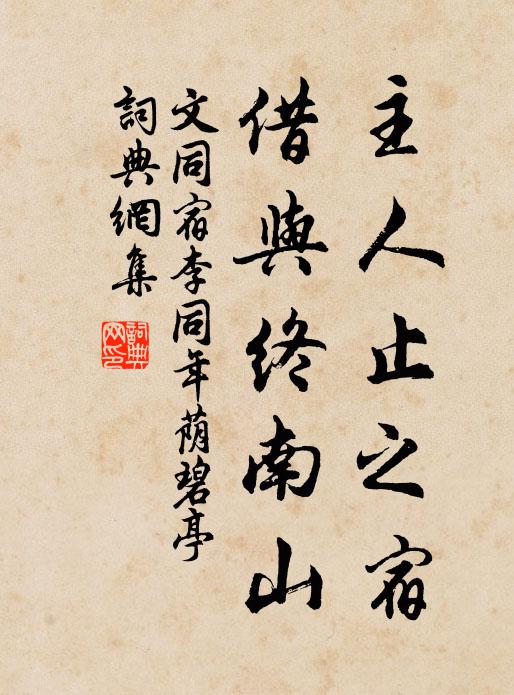 主人止之宿
借與終南山
文同宿李同年蔭碧亭
詞典網集
詞典网印